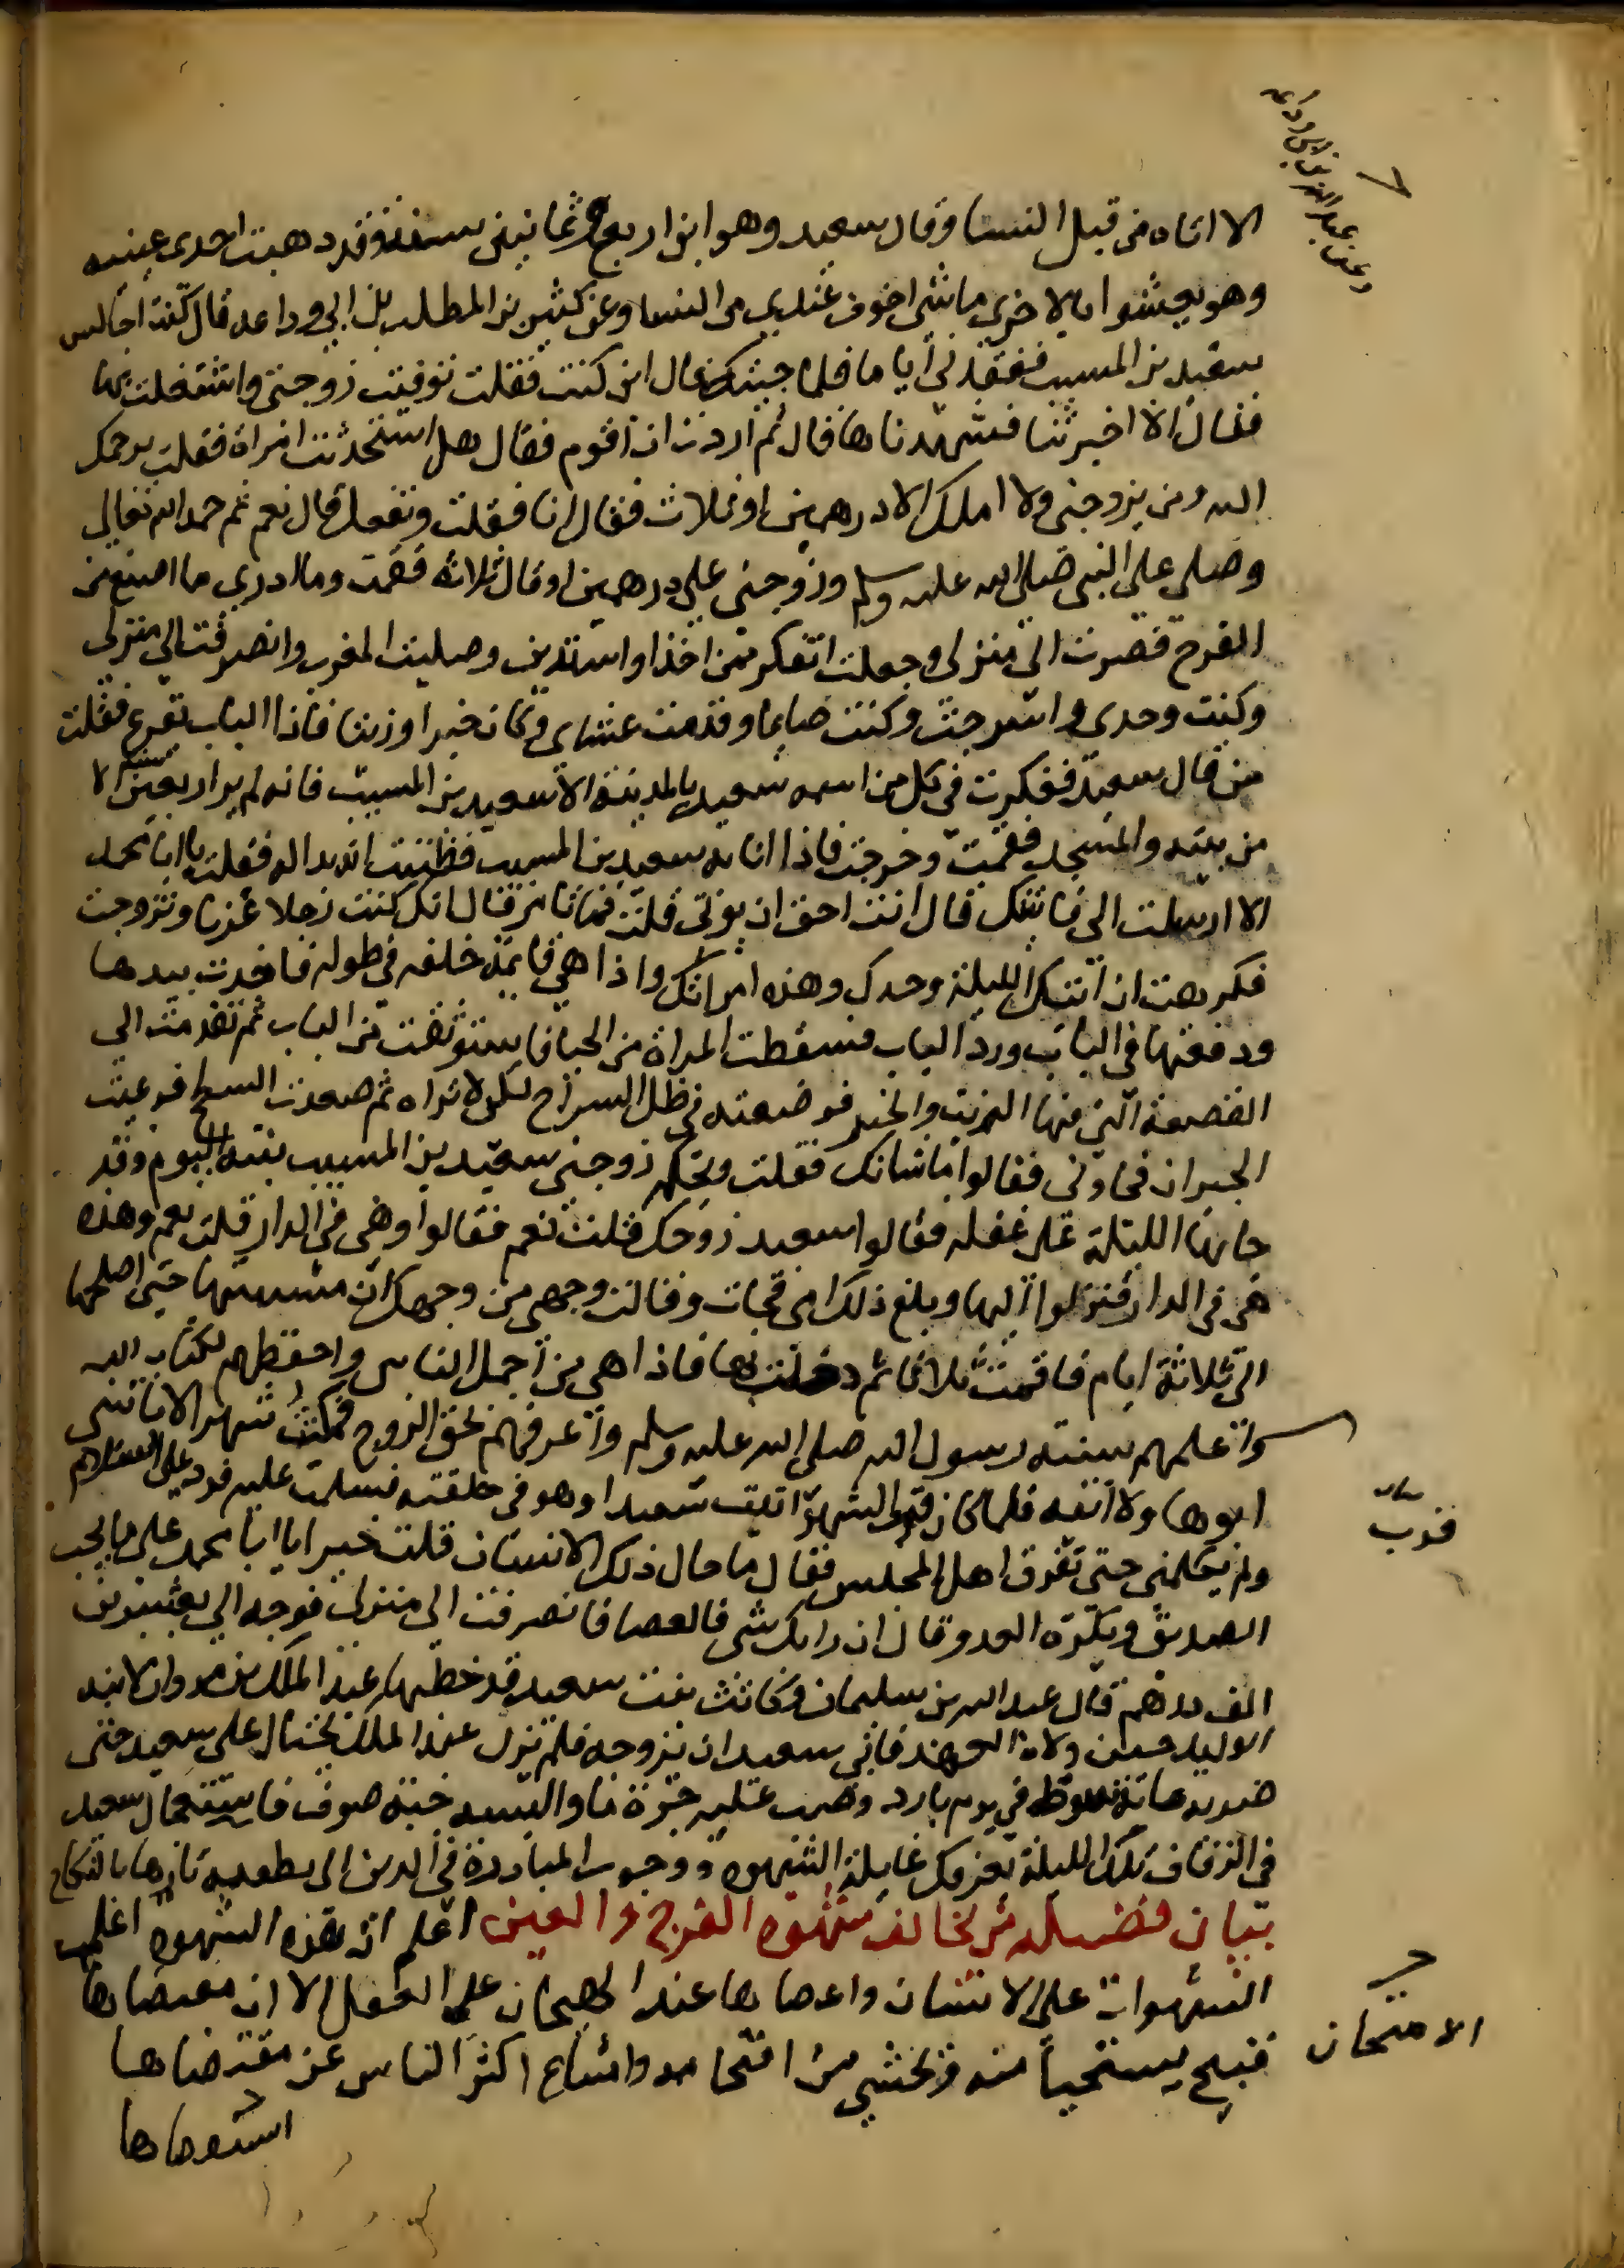 الا اتاه من قبل النسا وقال سعيد وهو ابن اربع وثمانين سنة وقد ذهبت احدى عينيه
وهو يعشوا بالاخرى ما شي اخوف عندي من النسا وعن كثير بن المطلب بن ابي وداعه قال كنت اجالس
سعيد بن المسيب ففقدني أياما فلما جيته قال اين كنت فقلت توفيت زوجتي واشتغلت بها
فقال الا اخبرتنا فشهدناها قال ثم أردت ان أقوم فقال هل استحدثت امراة فقلت يرحمك
الله ومن يزوجني ولا املك الا درهمين او ثلاث فقال انا فقلت وتفعل قال نعم ثم حمد الله تعالى
وصلى على النبي صلى الله عليه وسلم وزوجني على درهمين او قال ثلاثه فقمت وما ادري ما اصنع من
الفرح فصرت الى منزلي وجعلت اتفكر ممن اخذ او استدين وصليت المغرب وانصرفت الى منزلي
وكنت وحدي واسرجت وكنت صايما وقدمت عشاي وكان خبزا وزيتا فاذا الباب تقرع فقلت
من قال سعيد ففكرت في كل من اسمه سعيد بالمدينة الا سعيد بن المسيب فانه لم ير اربعين سنه الا
من بيته والمسجد فقمت وخرجت فاذا انا به سعيد بن المسيب فظننت انه بدا له فقلت يا ابا محمد
الا ارسلت الي فاتيتك قال انت احق ان يوتى قلت فما تامر قال انك كنت رجلا عزبا وتزوجت
فكرهت ان اتيتك الليلة وحدك وهذه امراتك واذا هي قايمة خلفه في طوله فاخذت بيدها
ودفعتها في الباب ورد الباب فسقطت المراة من الحيا فاستوثقت من الباب ثم تقدمت الى
القصعة التي فيها الزيت والخبز فوضعته في ظل السراج لكي لا تراه ثم صعدت السطح فرميت
الجيران فجاوني فقالوا ما شانك فقلت ويحكم زوجني سعيد بن المسيب بنته اليوم وقد
جا بها الليلة على غفله فقالوا سعيد زوجك قلت نعم فقالوا وهي في الدار قلت نعم وهذه
هي في الدار فنزلوا اليها وبلغ ذلك امي فجات وقالت وجهي من وجهك ان مسستها حتى اصلحها
الى ثلاثة ايام فاقمت ثلاثا ثم دخلت بها فاذا هي من اجمل الناس واحفظهم لكتاب الله
واعلمهم بسنة رسول الله صلى الله عليه وسلم واعرفهم بحق الزوج فمكثت شهرا لا ياتيني
ابوها ولا اتيه فلما كان قرب الشهر اتيت سعيدا وهو في حلقته فسلمت عليه فرد علي السلام
ولم يكلمني حتى تفرق اهل المجلس فقال ما حال ذلك الانسان قلت خير ايا ابا محمد على ما يحب
الصديق ويكره العدو قال ان رابك شي فالعصا فانصرفت الى منزلي فوجه الي بعشرين
الف درهم قال عبد الله بن سليمان وكانت بنت سعيد قد خطبها عبد الملك بن مروان لابنه
الوليد حين ولاه العهد فابى سعيد ان يزوجه فلم يزل عبد الملك يحتال على سعيد حتى
ضربه ماية سوط في يوم بارد وصب عليه جرة ما والبسه جبة صوف فاستعجال سعيد
في الزفاف تلك الليلة يعرفك غايلة الشهوه ووجوب المبادرة في الدين الى تطفيه نارها بالنكاح
بيان فضيله من يخالف شهوه الفرج والعين اعلم ان هذه الشهوه اغلب
الشهوات على الانسان واعصاها عند الهيجان على العقل الا ان مقتضاها
قبيح يستحيا منه ويخشى من اقتحامه وامتناع اكثر الناس عن مقتضاها
قرب
الامتحان